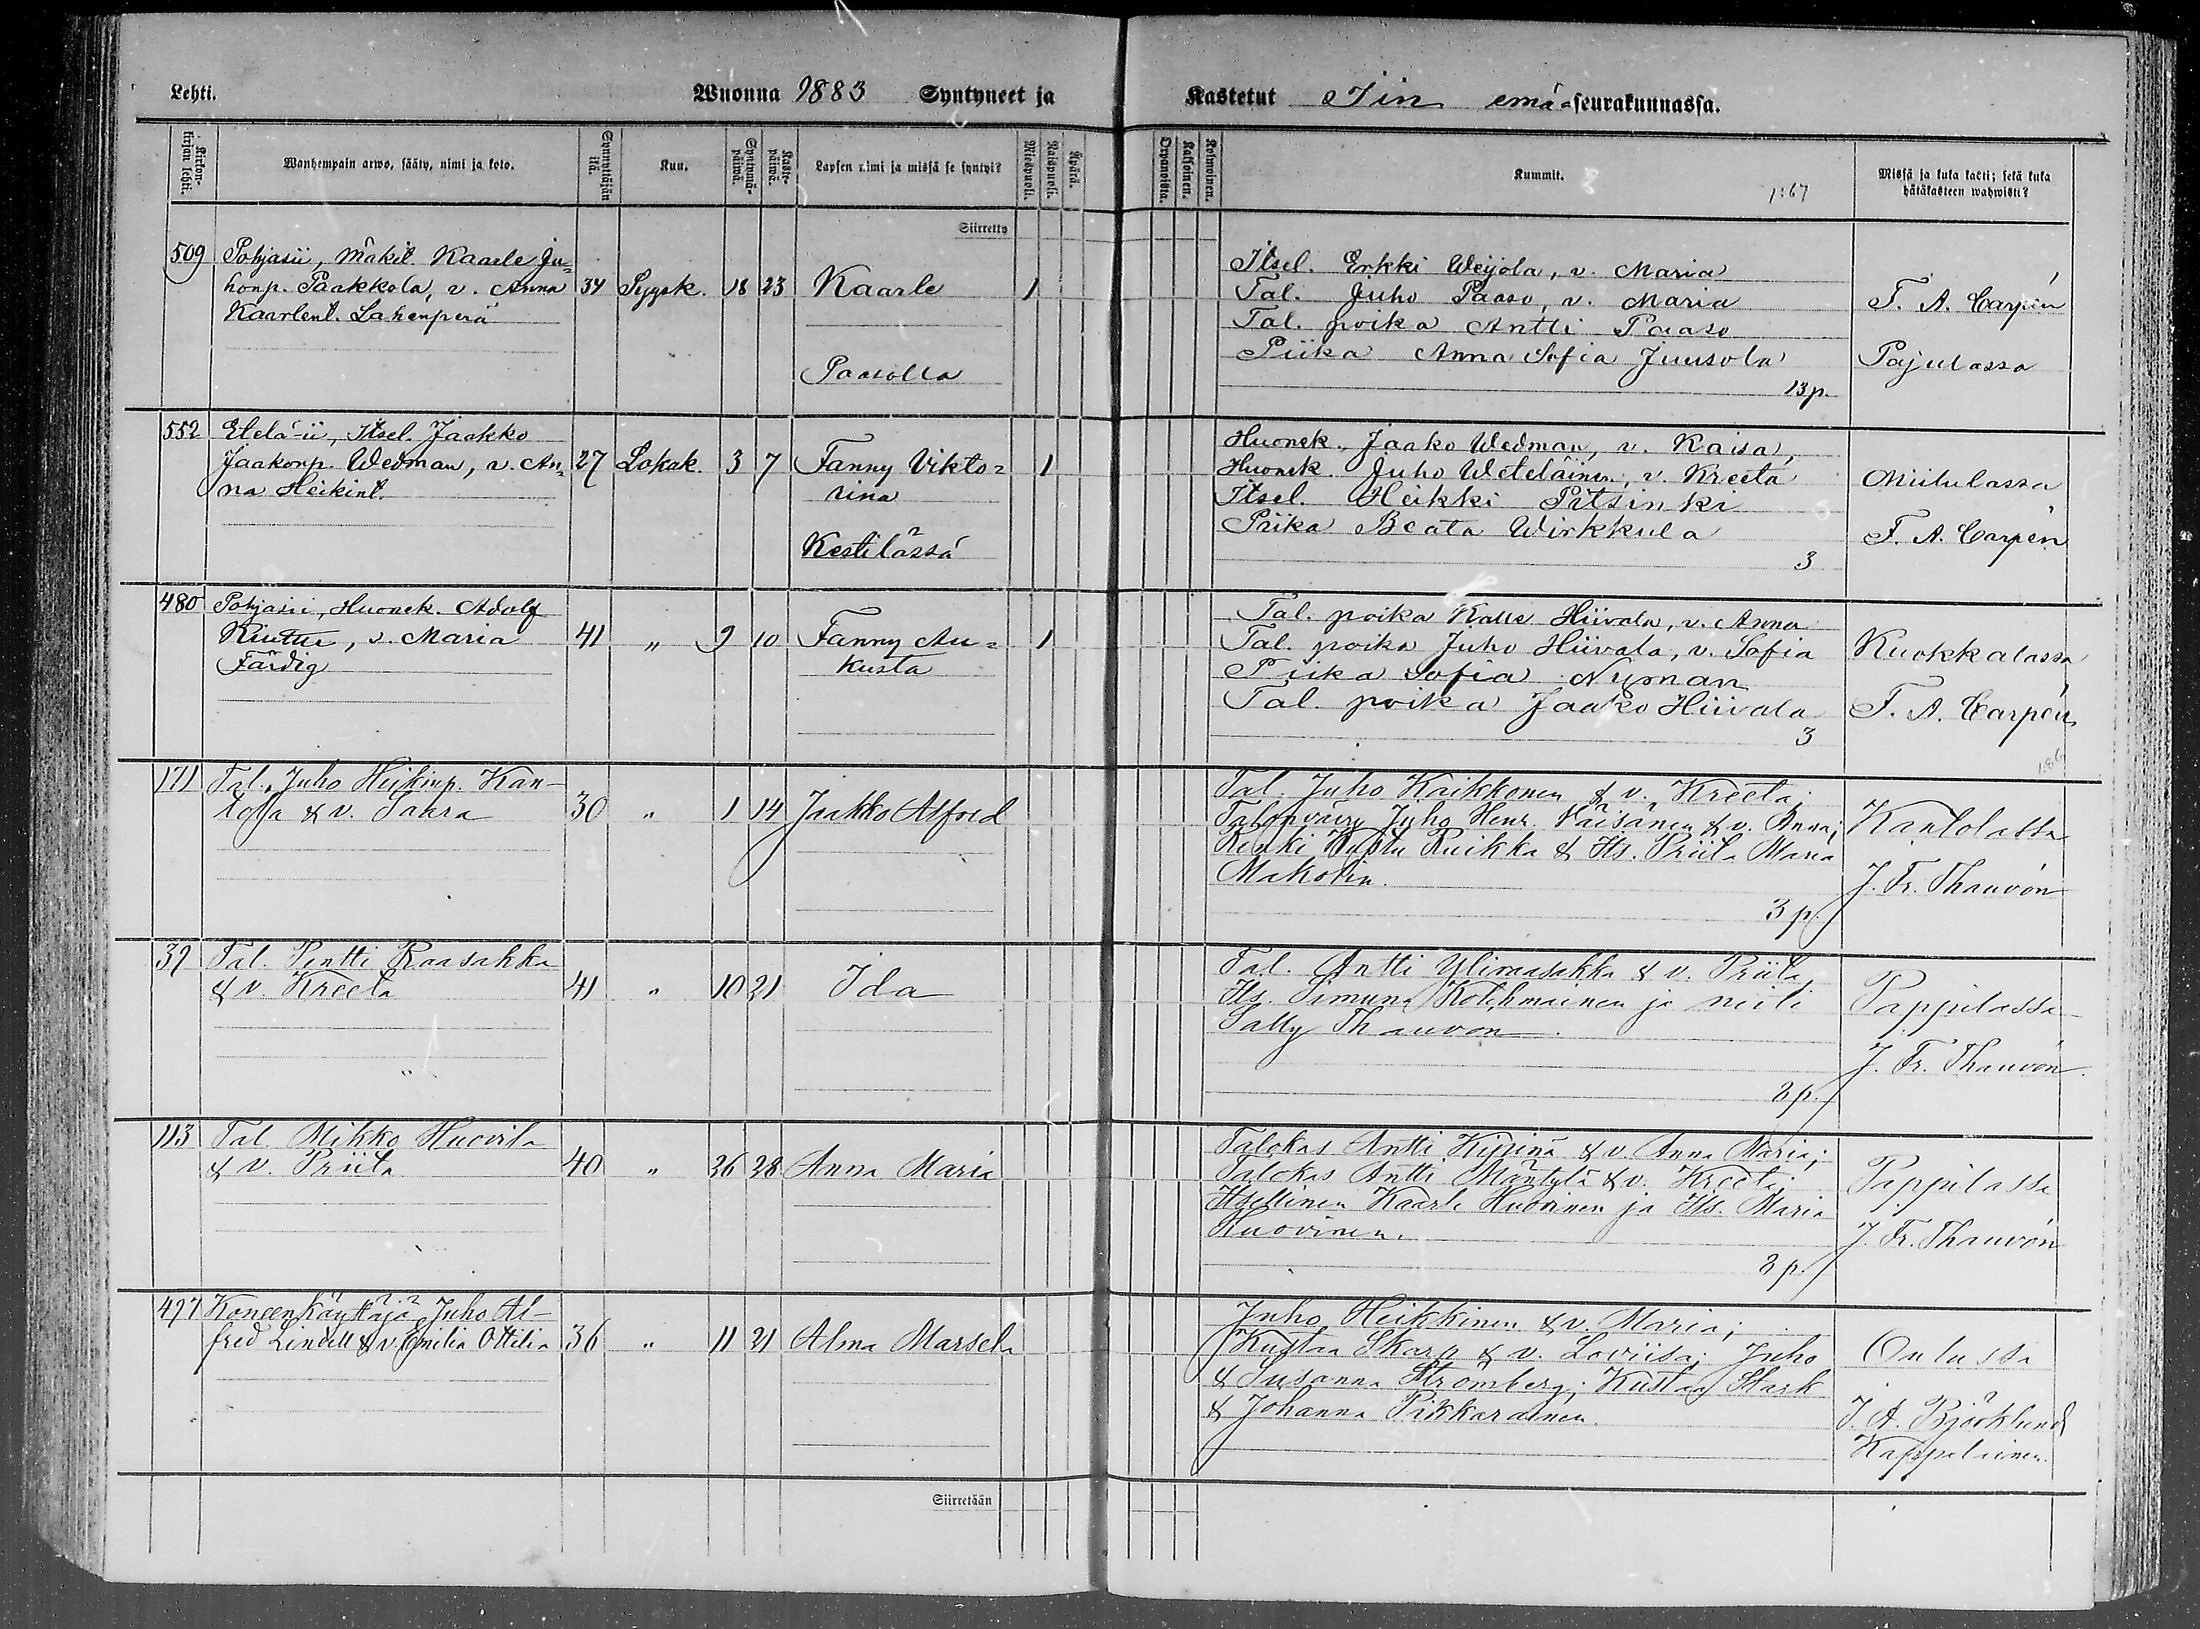 Lehti.
Wuonna 1883 Syntyneet ja
Kastetut Iin emä-seurakunnassa.
Kirkon-kirjan lehti.
Wanhempain arwo, sääty, nimi ja koto.
Synnyttäjän ikä.
Kuu.
Syntymä-päivä.
Kaste-päivä.
Lapsen nimi ja missä se syntyi?
Miespuoli.
Naispuoli.
Äpärä.
Orpanoista.
Kaksoinen.
Kolmoinen.
Kummit.
1:67
Missä ja kuka kasti; sekä kuka hätäkasteen wahwisti?
Siirretty
509 Pohjasii, Mäkit. Kaarle Ju-
honp. Paakkola, v. Anna 34 Syysk. 18 23 Kaarle 1
Kaarlent. Lahenperä
Paasolla
Itsel. Erkki Weijola, v. Maria
Tal. Juho Paaso, v. Maria
Tal. poika Antti Paaso
Piika Anna Sofia Juusola
13 p.
T. A. Carpén
Pajulassa
552 Etelä-ii, Itsel. Jaakko
Jaakonp. Wedman, v. An- 27 Lokak. 3 7 Fanny Vikto- 1
na Heikint. rina
Kestilässä
Huonek. Jaako Wedman, v. Kaisa,
Huonek. Juho Weteläinen, v. Kreeta
Itsel. Heikki Pitsinki
Piika Beata Wirkkula
3
Miitulassa
F. A. Carpén
480 Pohjasii, Huonek. Adolf
v. Maria 41 " 9 10 Fanny Au- 1
Färdig kusta
Tal. poika Kalle Hiivala, v. Anna
Tal. poika Juho Hiivala, v. Sofia
Piika Sofia Nyman
Tal. poika Jaako Hiivala
3
Kuokkalassa
F. A. Carpén
171 Tal. Juho Heikinp. Kan-
tola & v. Saara 30 " 1 14 Jaakko Alfred
Tal. Juho Kaikkonen & v. Kreeta;
Talonväry Juho Henr. Väisänen & v. Anna;
Renki Kusta Ruikka & Its. Priita Maria
Makolin.
3 p.
Kantolassa
J. Fr. Thauvón
39 Tal. Pentti Raasakka
& v. Kreeta 41 " 10 21 Ida
Tal. Antti Yliraasakka & v. Priita
Its. Simuna Kolehmainen ja neiti
Sally Thauvon.
2 p.
Pappilassa
J. Fr. Thauvón.
113 Tal. Mikko Huovila
& v. Priita 40 " 26 28 Anna Maria
Talokas Antti & v. Anna Maria;
Talokas Antti Mäntylä & v. Kreeta;
Itsellinen Kaarle Huovinen ja Its. Maria
Huovinen.
2 p.
Pappilassa
J. Fr. Thauvón
497 Koneenkäyttäjä Juho Al-
fred Lindell & v. Emilia Ottilia 36 " 11 21 Alma Marsela
Juho Heikkinen & v. Maria;
Kustaa Skarp & v. Loviisa; Juho
& Susanna Strömberg; Kustaa Stark
& Johanna Pikkarainen.
Oulussa
J. A. Björklund
Kappalainen.
Siirretään